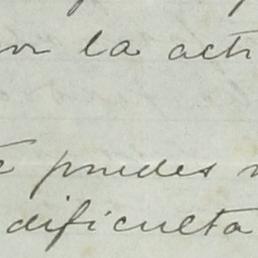 or la acti
puedes
dificulta